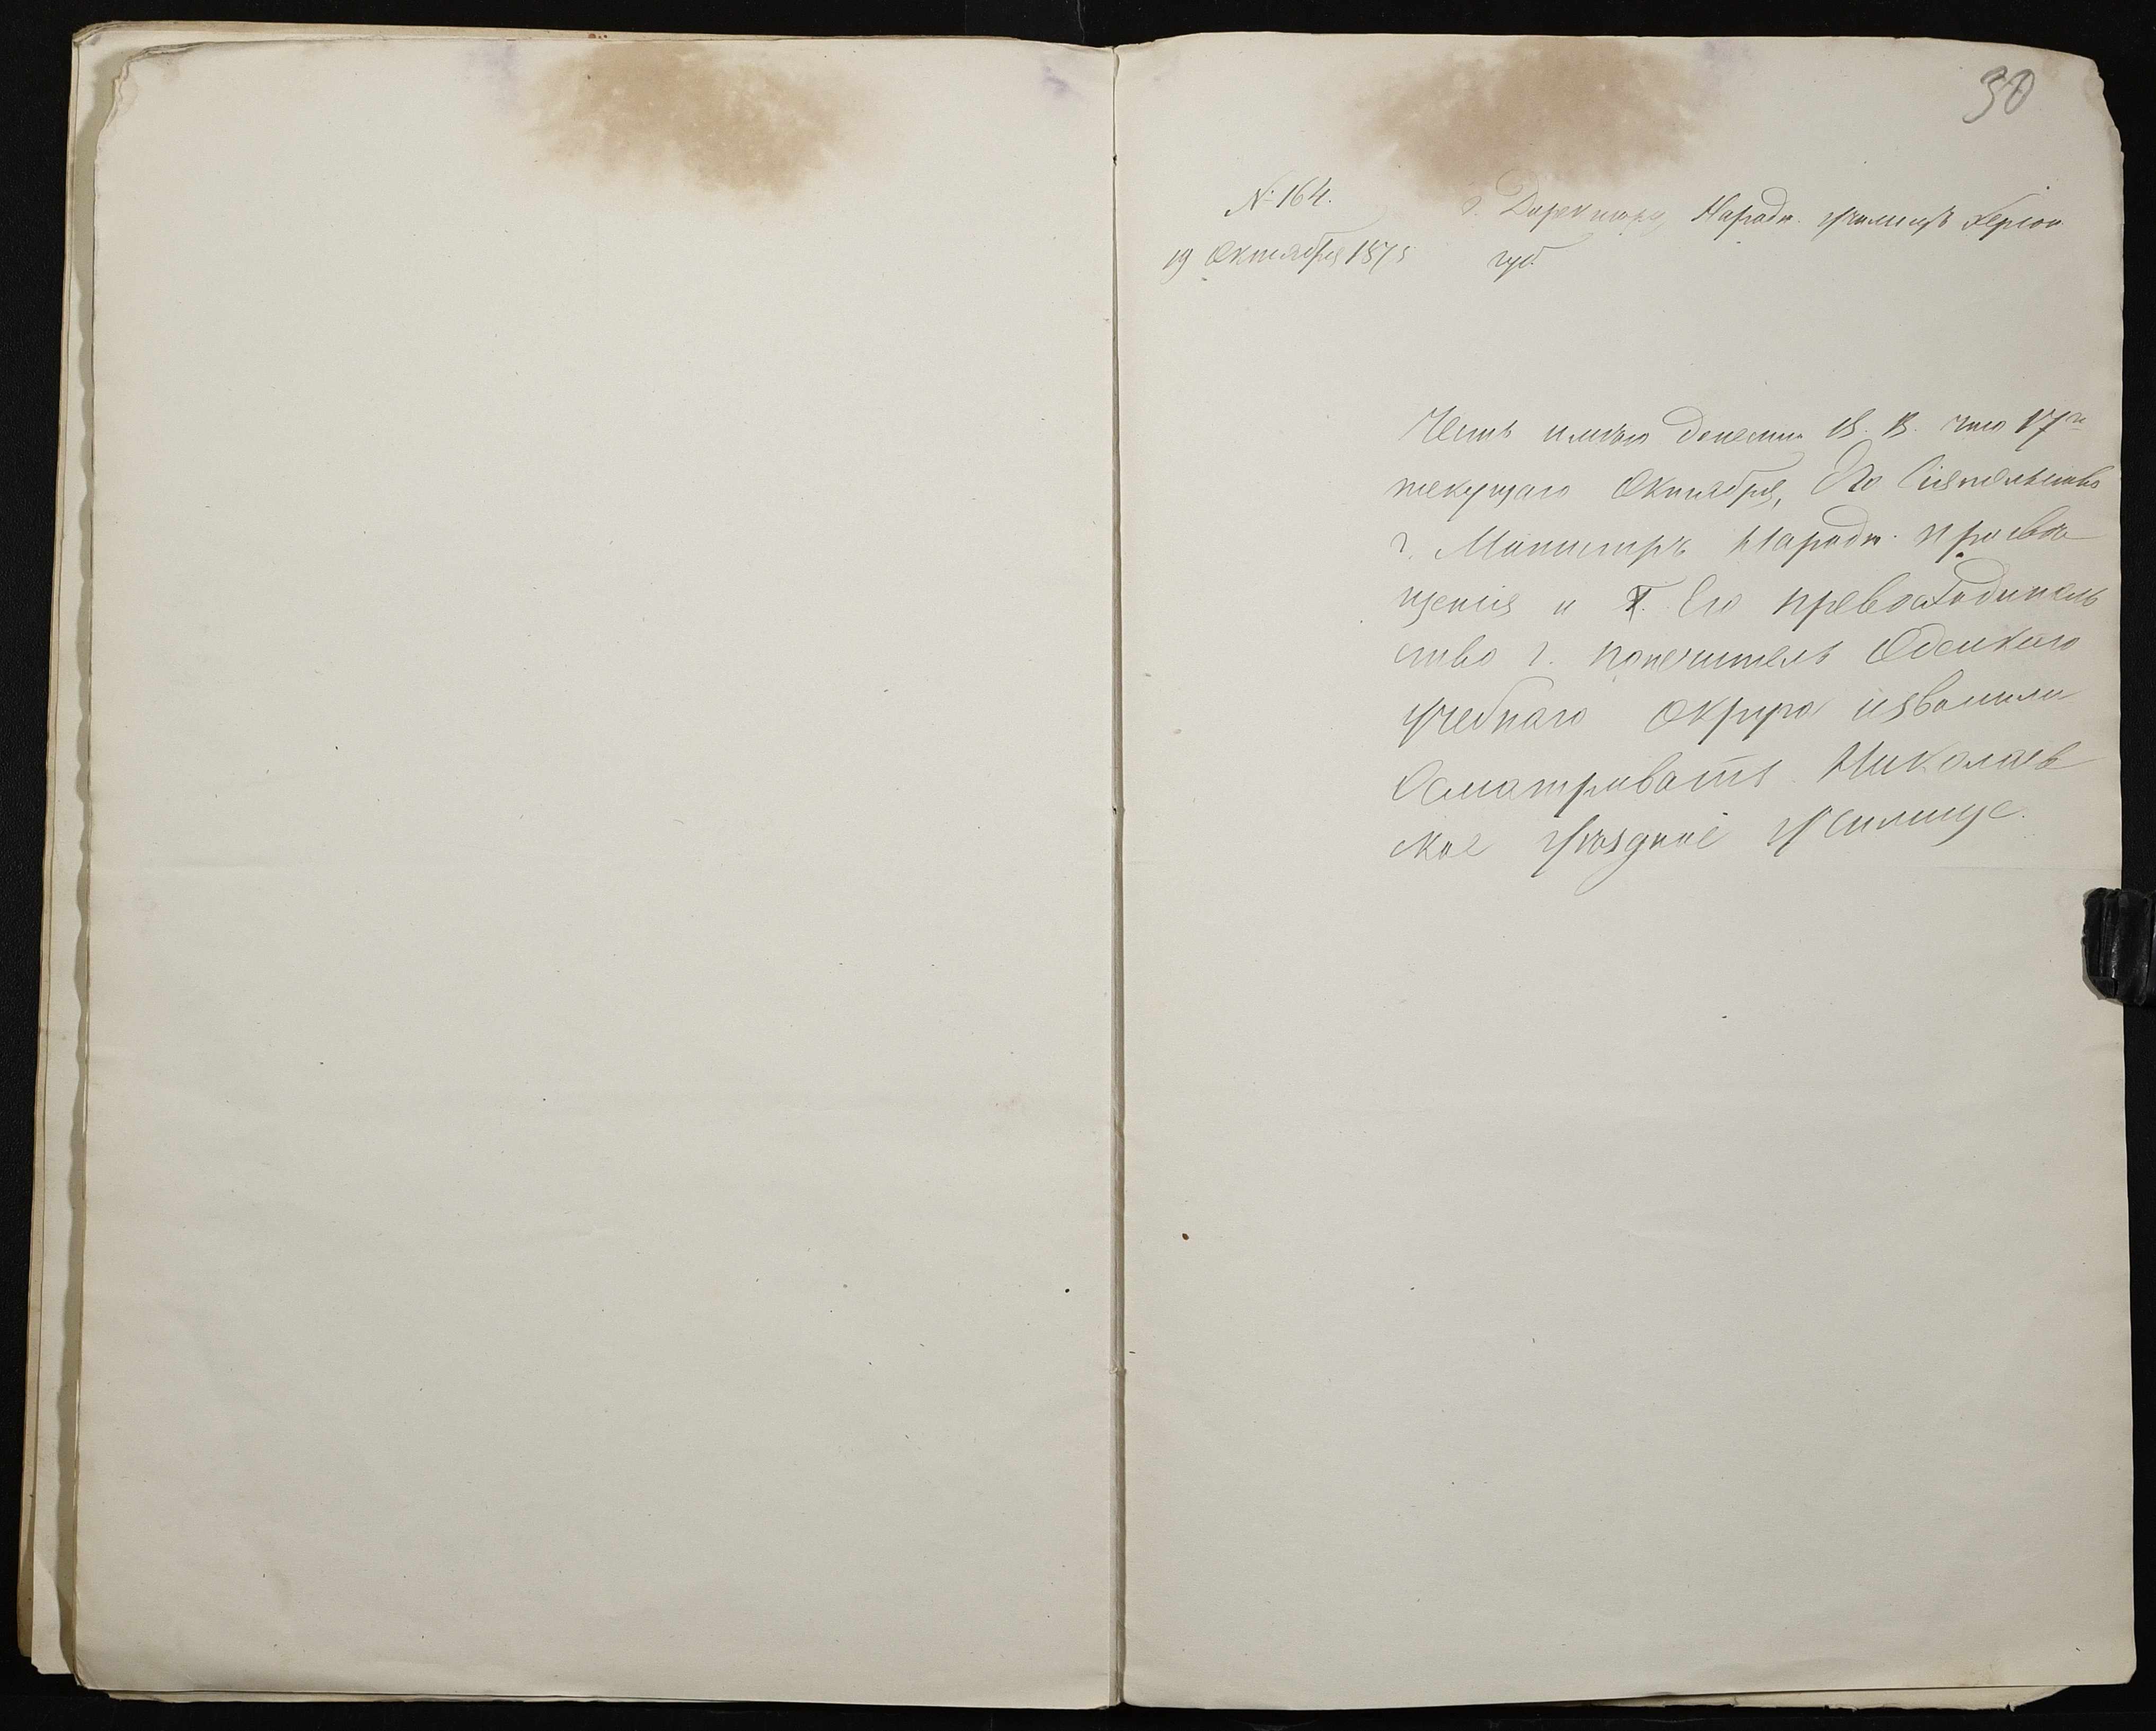 30
№ 164.
19 Октября 1875
г. Директору Народн. училищъ Херсон.
губ.
Честь имѣю донести В. В. что 17го
текущаго Октября, Его Сіятельство
г. Министръ Народн. Просвѣ
щенія и Его превосходитель
ство г. попечитель Одесскаго
учебнаго Округа изволили
Осматривать Николаев
ское Уѣздное Училище.